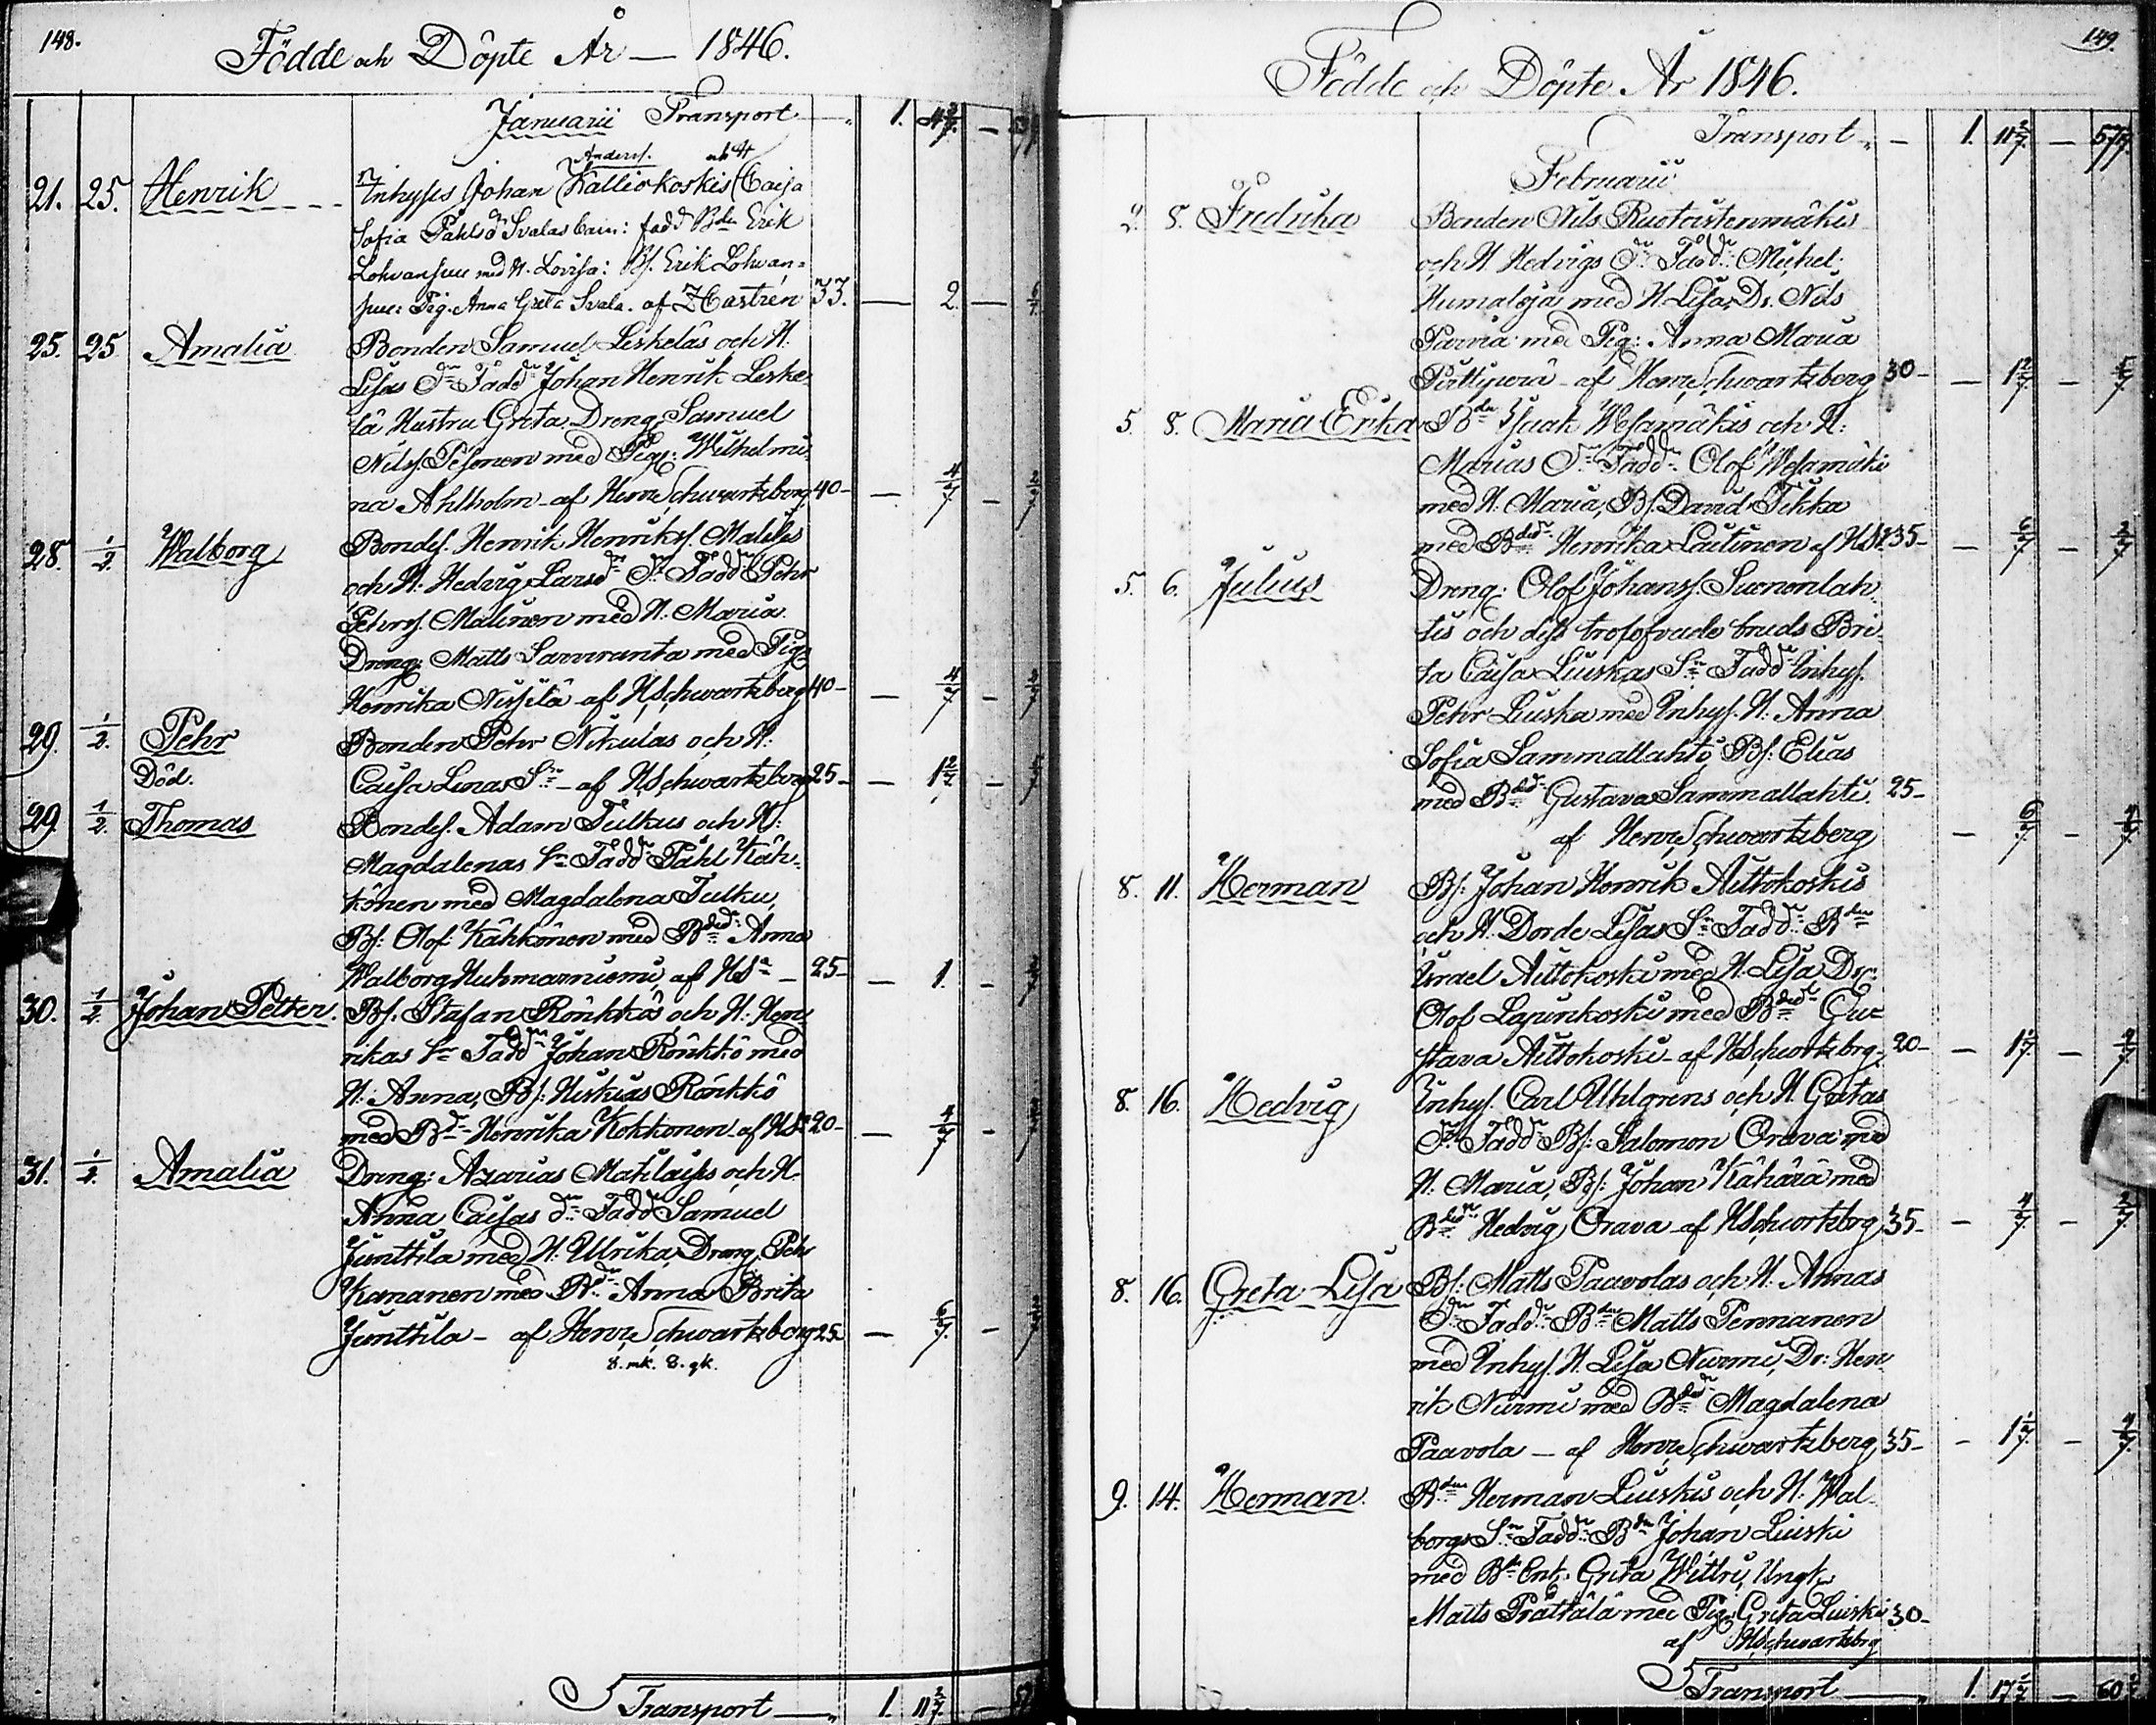 148.
Födde och Döpte År — 1846.
Januarii Transport 1. 4 2/7. —
Anders. och H
21. 25. Henrik Inhyses Johan Kalliokoskis Caisa
Sofia Påhlsd Svalas barn: fadd Bdn Erik
med H. Lovisa: Bs. Erik
Pig. Anna Greta Svala. af Z Castrén 33. — 2. —
25. 25 Amalia Bonden Samuel Leskeläs och H.
Lisas Dr Fadd Johan Henrik Leske
lä Hustru Greta Dreng Samuel
Nilss. Pesonen med Pig: Wilhelmi
na Ahlholm af Herr Schwartzberg 40 — 4/7 —
28. 1/2. Walborg Bondes. Henrik Henrikss.
och H: Hedvig Larsd Dr Fadd Pehr
Pehrss. Malinen med H. Maria.
Dreng: Matts Sarviranta med Pig:
Henrika Nissilä af HSchwartzberg 40 — 4/7 —
29. 1/2. Pehr Bonden Pehr Nikulas och H:
Död. Caisa Lenas Sn — af HSchwartzberg 25 — 1 2/7 —
29. 1/2. Thomas Bondes. Adam Tulkus och H:
Magdalenas Sn Fadd Påhl Käh-
könen med Magdalena Tulku,
Bs: Olof: Kähkönen med Bded: Anna
Walborg Huhmarniemi af HSn — 25 — 1. —
30. 1/2. Johan Petter. Bs. Stafan Rönkkös och H: Hen
rikas Sn Fadd Johan Rönkkö med
H. Anna, Bs: Hiskias Rönkkö
med Bd Henrika Kokkonen af HSn 20 — 4/7 —
31. 1/2. Amalia Dreng: Azarias Matilaises och H.
Anna Caisas dr Fadd Samuel
Junttila med H. Ulrika, Dreng Pehr
Kananen med Bd Anna Brita
Junttila — af Herr Schwartzberg 25 — 6/7. —
8. mk. 8. qk.
Transport — 1. 11 2/7. —
149.
Födde och Döpte År 1846.
Transport — 1. 11 2/7. — 57
Februarii
8. Fredrika Bonden Nils Ruotoistenmäkis
och H. Hedvigs Dr Fadd: Mickel
Humaloja med H. Lisa, Dr. Nils
Parvia med Pig: Anna Maria
af Herr Schwartzberg 30 — 1 2/7 —
5. 8. Maria Erika Bdn Isaak Wesamäkis och H:
Marias Dr Fadd: Olof Wesamäki
med H. Maria, Bs. David Tikka
med Bded Henrika Laitinen af HSn 35 — 6/7 — 2/7
5. 6. Julius Dreng: Olof Johanss. Suononlah
tis och dess trolofvade bruds Bri
ta Caisa Luiskas Sn Fadd Inhys.
Pehr Luiska med Inhys. H. Anna
Sofia Sammallahti, Bs: Elias
med Bded Gustava Sammallahti. 25 —
af Herr Schwartzberg — 6/7 — 4/7
8. 11. Herman Bs: Johan Henrik Aittokoskis
och H. Dorde Lisas Sn Fadd: Bdn
Israel Aittokoski med H. Lisa Dr:
Olof Lapinkoski med Bded Gus
stava Aittokoski af HSchwartzbrg. 20 — 1 —
8. 16. Hedvig Inhys. Carl Uhlgrens och H. Gretas
Dr Fadd Bs: Salomon Orava med
H. Maria, Bs: Johan Kähärä med
Bded Hedvig Orava af HSchwartzbrg 35 — 4/7 — 2/7
8. 16. Greta Lisa Bs: Matts Paavolas och H. Annas
Dr Fadd Bdn Matts Pennanen
med Inhys. H. Lisa Nurmi, Dr: Hen
rik Nurmi med Bded Magdalena
Paavola — af Herr Schwartzberg 35 — 1 — 4/7
9. 14. Herman. Bdn Herman Luiskis och H. Wal
borgs Sn Fadd Bdn Johan Luiski
med Bd Enk: Greta Wittri, Ungk
Matts Prättälä med Pig Greta Luiski 30 —
af HSchwartzbrg
Transport — 1. 17 — 60